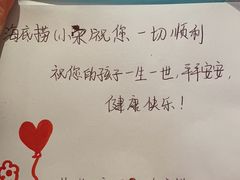 海底捞(小宋祝您、一切顺利
祝您的孩子一生一世,平平安安,
健康快乐!